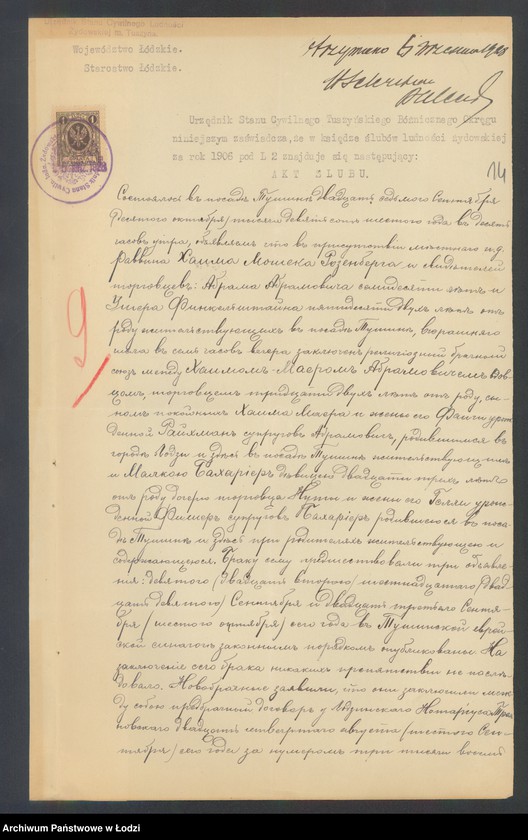 Urzędnik Stanu Cywilnego
Województwo Łódzkie.
Starostwo Łódzkie.
Urzędnik Stanu Cywilnego Tuszyńskiego Bóżniczego Okręgu
niniejszym zaświadcza, że w księdze ślubów ludności żydowskiej
za rok 1906 pod L 2 znajduje się następujący:
AKT ZLUBU.
14
Состоялось въ посадѣ Тушинѣ двадцать седьмого Сентября
/десятаго октября/ тысяча девятьсотъ шестого года въ десять
часовъ утра, Объявляемъ что въ присутствіи мѣстнаго и.д.
раввина Хаима Мошека Розенберга и свидѣтелей
торговцевъ: Абрама Абрамовича семидесяти лѣтъ и
Ушера Финкельштайна пятидесяти двухъ лѣтъ отъ
роду жительствующихъ въ посадѣ Тушинѣ, вчерашняго
числа въ семь часовъ вечера заключенъ религіозный брачный
союзъ между Хаимомъ-Маеромъ Абрамовичемъ вдов-
цомъ, торговцемъ тридцати двухъ лѣтъ отъ роду, сы-
номъ покойныхъ Хаима Маера и жены его Файги урож
денной Райхманъ супруговъ Абрамовичъ, родившимся въ
городѣ Лодзи и здѣсь въ посадѣ Тушинѣ жительствующимъ
и Малкою Бахаріеръ дѣвицей двадцати трехъ лѣтъ
отъ роду дочерью торговца Нуты и жены его Гелли урож-
денной Фишеръ супруговъ Бахаріеръ родившеюся въ поса-
дѣ Тушинѣ и здѣсь при родителяхъ жительствующею и
содержащеюся. Браку сему предшествовали три объявле-
нія: девятого /двадцать второго/ шестнадцатаго /двад-
цать девятого/ Сентября и двадцать третьяго Сентя-
бря /шестого октября/ сего года въ Тушинской еврей
ской синагогѣ законнымъ порядкомъ опубликованы. На
заключеніе сего брака никакихъ препятствій не послѣ-
довало. Новобрачные заявили, что они заключили меж-
ду собою предбрачный договоръ у Нотаріуса
двадцать четвертаго августа /шестого Сен-
тября/ сего года за нумеромъ три тысячи восемь